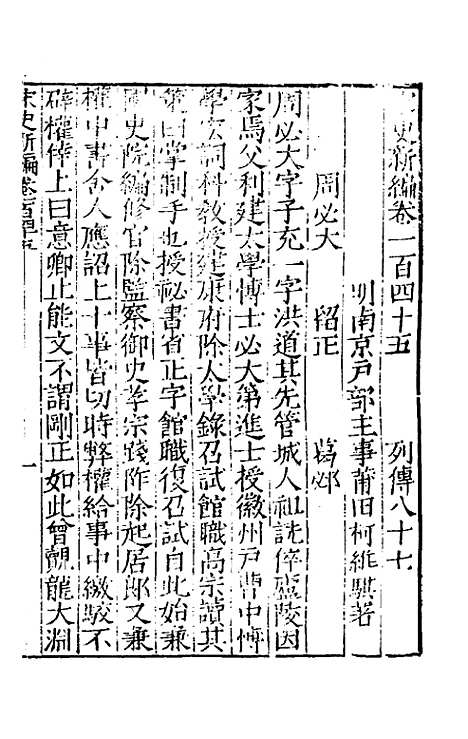 史新編卷一百四十五　列傳八十七
明南京戶部主事莆田柯維騏著
周必大　留正　葛邲
周必大字子充一字洪道其先管城人祖詵倅廬陵因
家焉父利建太學博士必大第進士授徽州戶曹中博
學宏詞科教授建康府除太學錄召試館職高宗讀其
策曰掌制手也授祕書省正字館職復召試自此始兼
國史院編修官除監察御史孝宗踐阼除起居郎又兼
權中書舍人應詔上十事皆切時弊權給事中繳駁不
辟權倖上曰意卿止能文不謂剛正如此曾覿龍大淵
宋史新編卷一百四十五
一